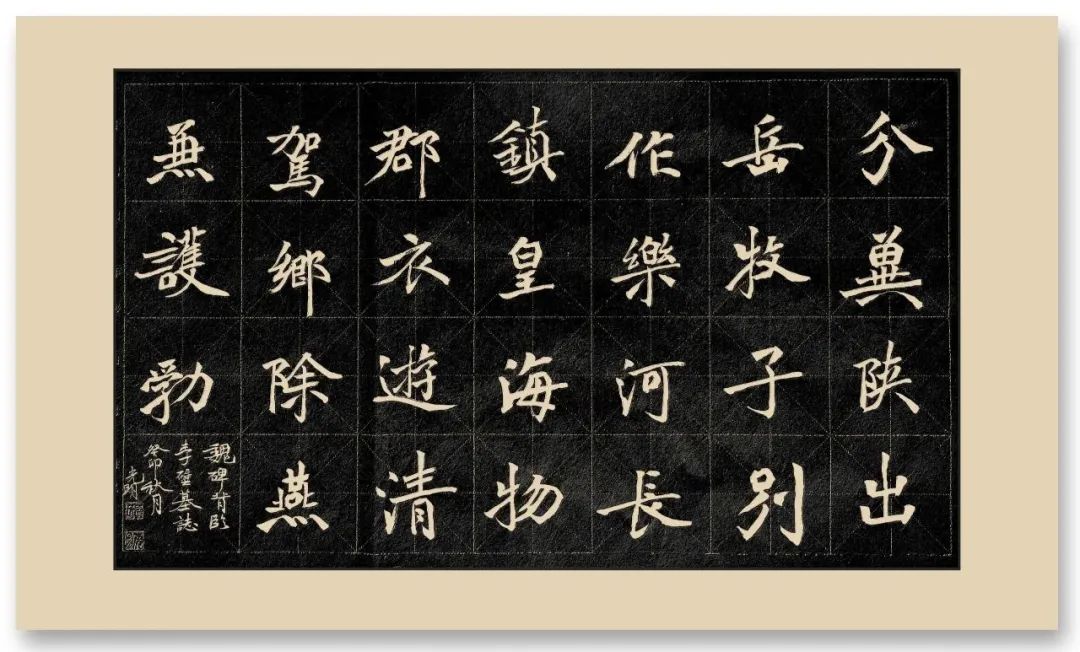 分冀陕出
岳牧子別
作樂河長
鎮皇海物
郡衣遊清
駕鄉除燕
無護勃
魏碑背臨
李璧墓誌
癸卯秋月
光明